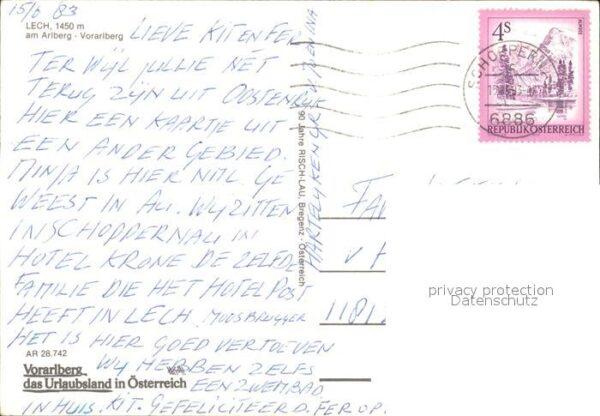 15/6 83
LECH, 1450 m
am Arlberg - Vorarlberg
LIEVE KIT EN FER
TER WIJL JULLIE NET
TERUG ZIJN UIT OOSTENRIJK
HIER EEN KAARTJE UIT
EEN ANDER GEBIED.
MINJA IS HIER NML. GE
WEEST IN AU. WY ZITTEN
IN SCHOPPERNAU IN
HOTEL KRONE DE ZELFDE
FAMILIE DIE HET HOTEL POST
HEEFT IN LECH. MOOSBRUGGER
HET IS HIER GOED VERTOEVEN
WY HEBBEN ZELFS
EEN ZWEMBAD
IN HUIS. KIT. GEFELICITEERD. FER OP.
AR 28.742
Vorarlberg
das Urlaubsland in Österreich
90 Jahre RISCH-LAU, Bregenz - Österreich
HARTELYKEN GR.
4S
ALMSEE
SCHOPPERNAU
6886
REPUBLIK ÖSTERREICH
FA
V H
1181
privacy protection
Datenschutz